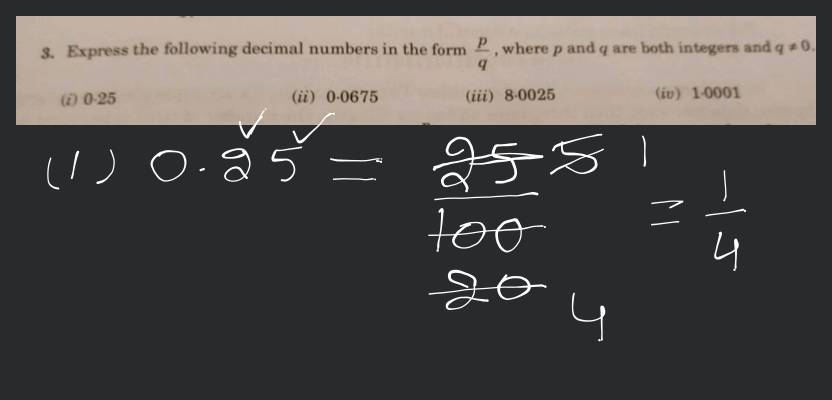 3. Express the following decimal numbers in the form p/q, where p and q are both integers and q ≠ 0.
(i) 0·25 (ii) 0·0675 (iii) 8·0025 (iv) 1·0001
(1) 0.25 = 25 5 1
100
20 4
= 1/4